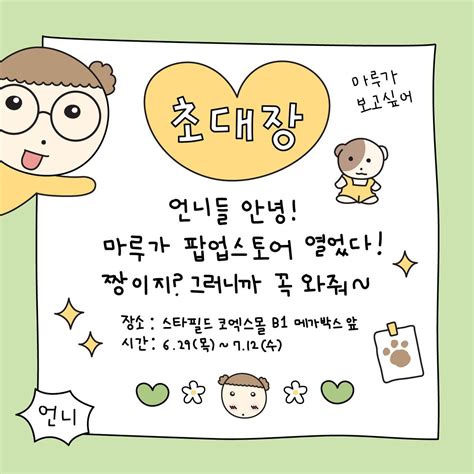 초대장
마루가
보고싶어
언니들 안녕!
마루가 팝업스토어 열었다!
짱이지? 그러니까 꼭 와줘~
장소 : 스타필드 코엑스몰 B1 메가박스 앞
시간 : 6.29(목) ~ 7.12(수)
언니